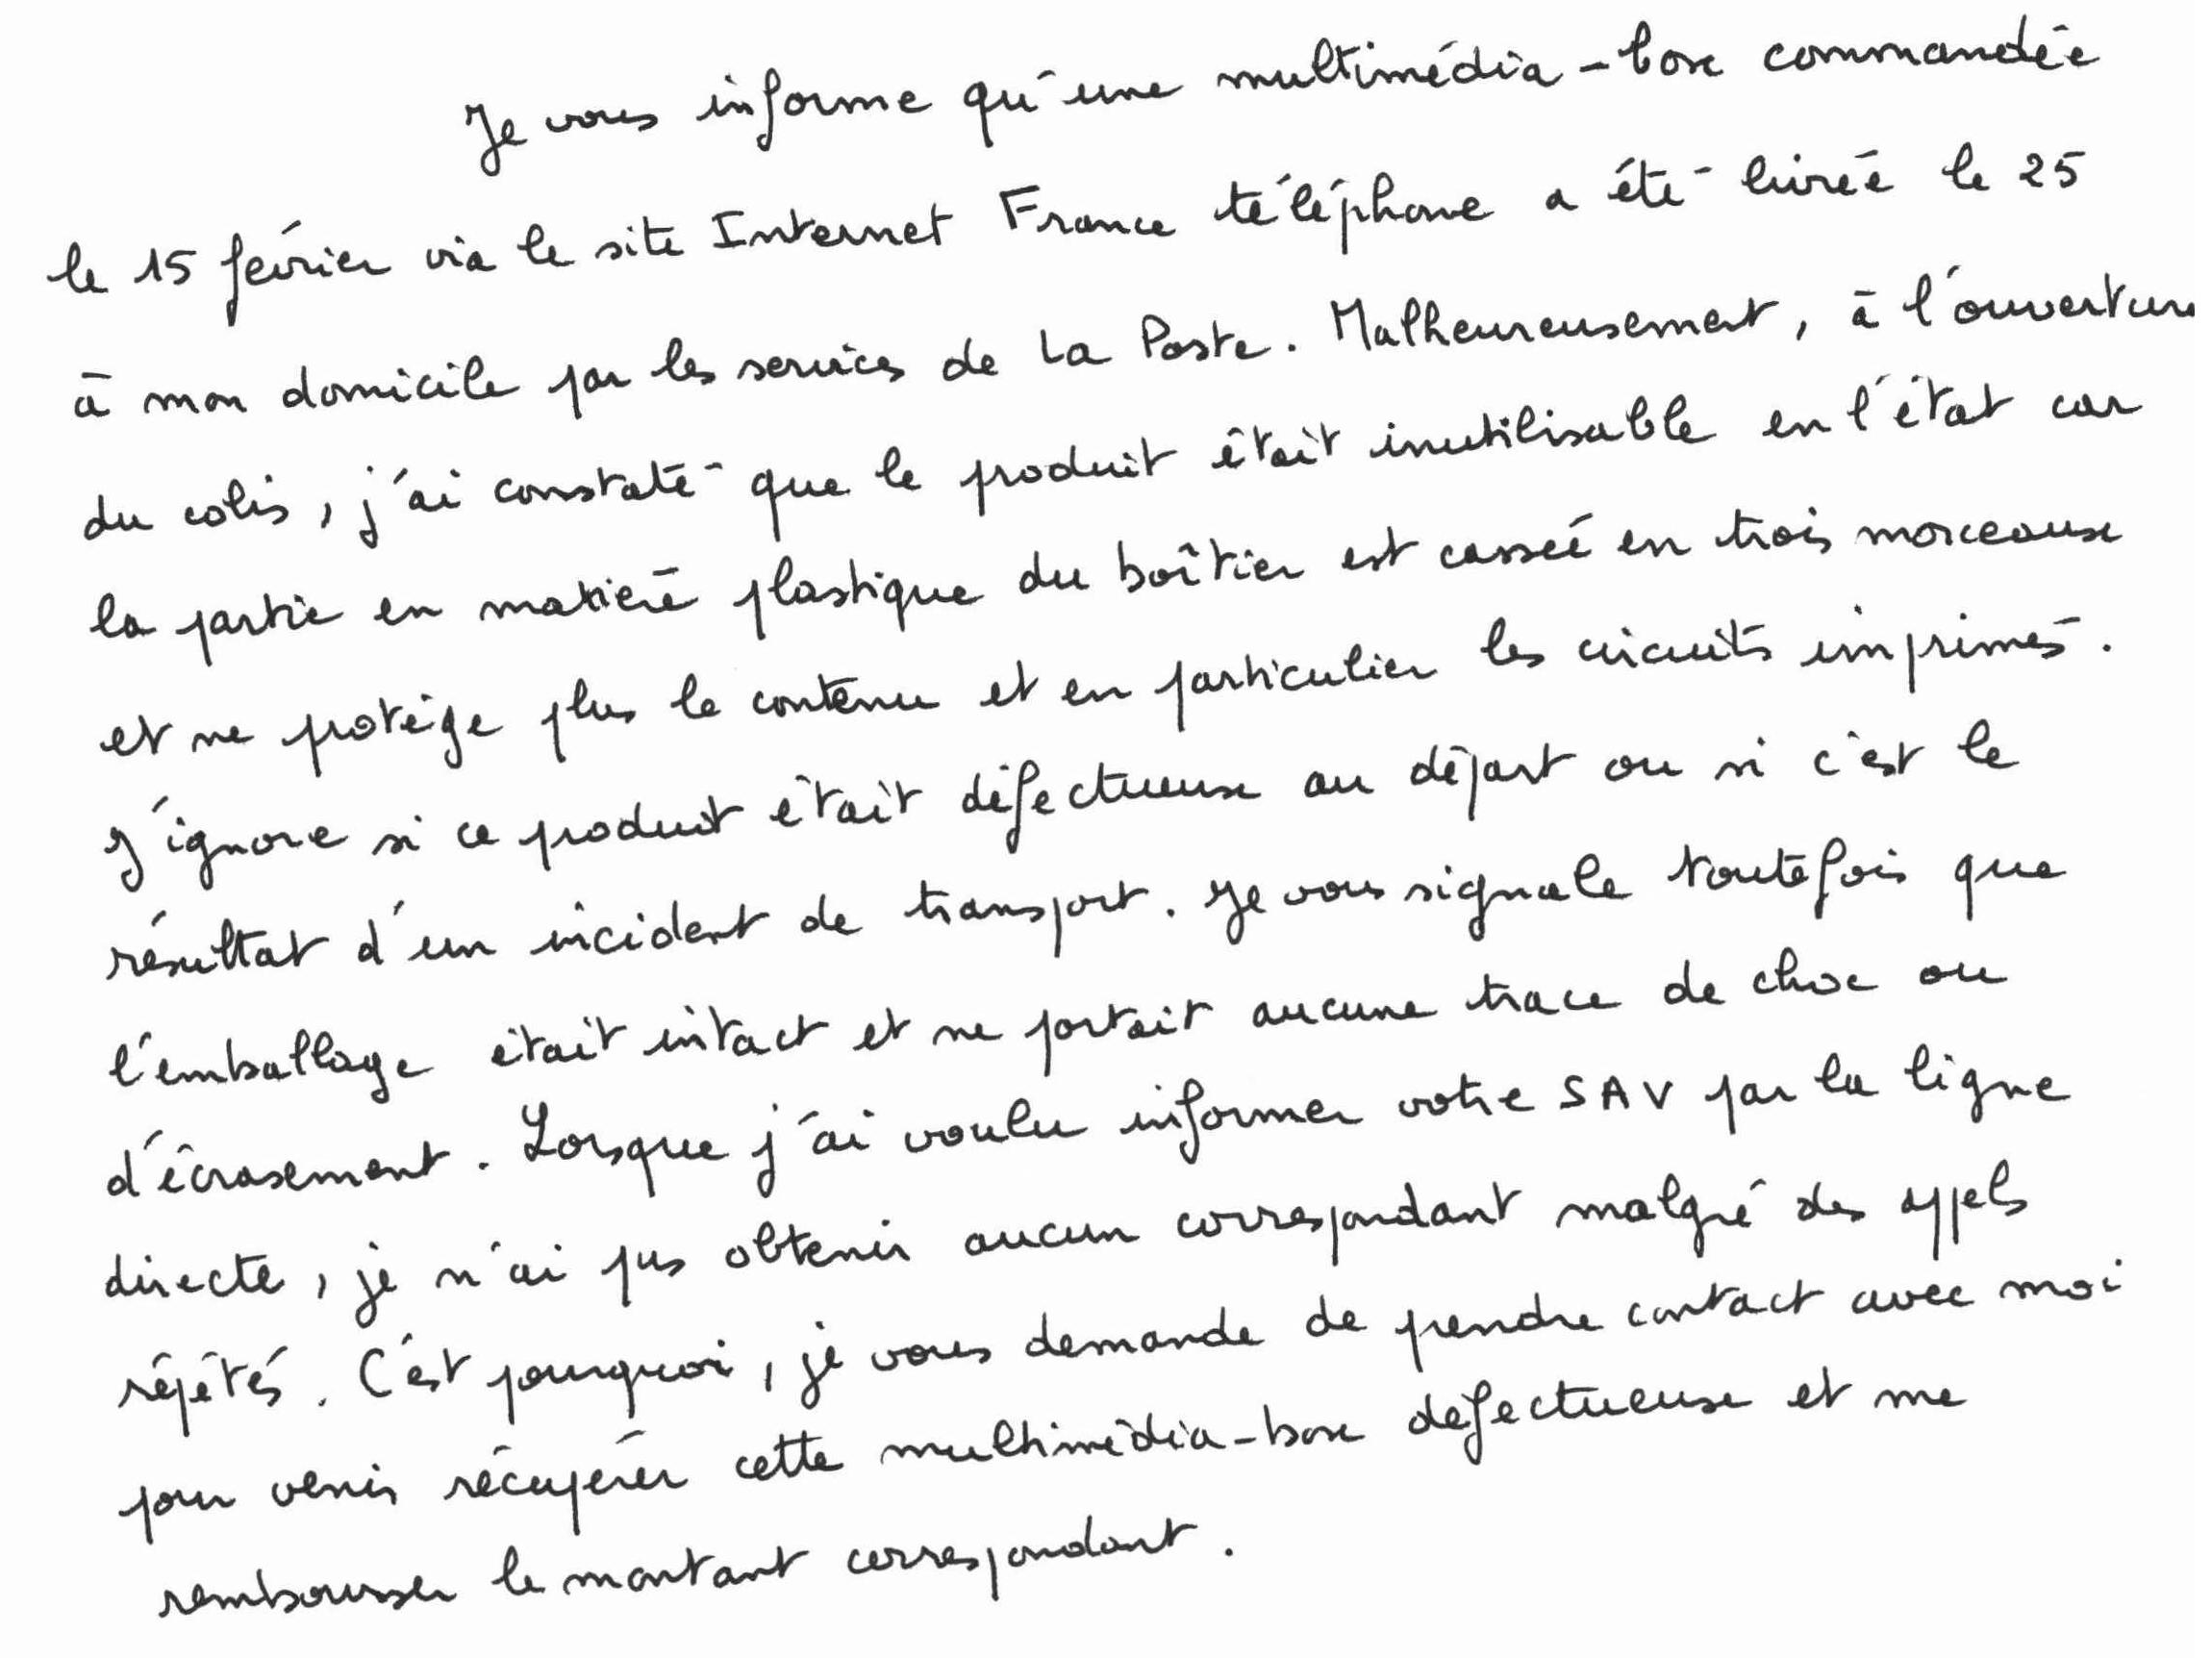 Je vous informe qu'une multimédia-box commandée
le 15 février via le site Internet France téléphone a été livrée le 25
à mon domicile par les services de La Poste. Malheureusement, à l'ouverture
du colis, j'ai constaté que le produit était inutilisable en l'état car
la partie en matière plastique du boîtier est cassée en trois morceaux
et ne protège plus le contenu et en particulier les circuits imprimés.
J'ignore si ce produit était défectueux au départ ou si c'est le
résultat d'un incident de transport. Je vous signale toutefois que
l'emballage était intact et ne portait aucune trace de choc ou
d'écrasement. Lorsque j'ai voulu informer votre SAV par la ligne
directe, je n'ai pus obtenir aucun correspondant malgré des appels
répétés. C'est pourquoi, je vous demande de prendre contact avec moi
pour venir récupérer cette multimédia-box défectueuse et me
rembourser le montant correspondant.